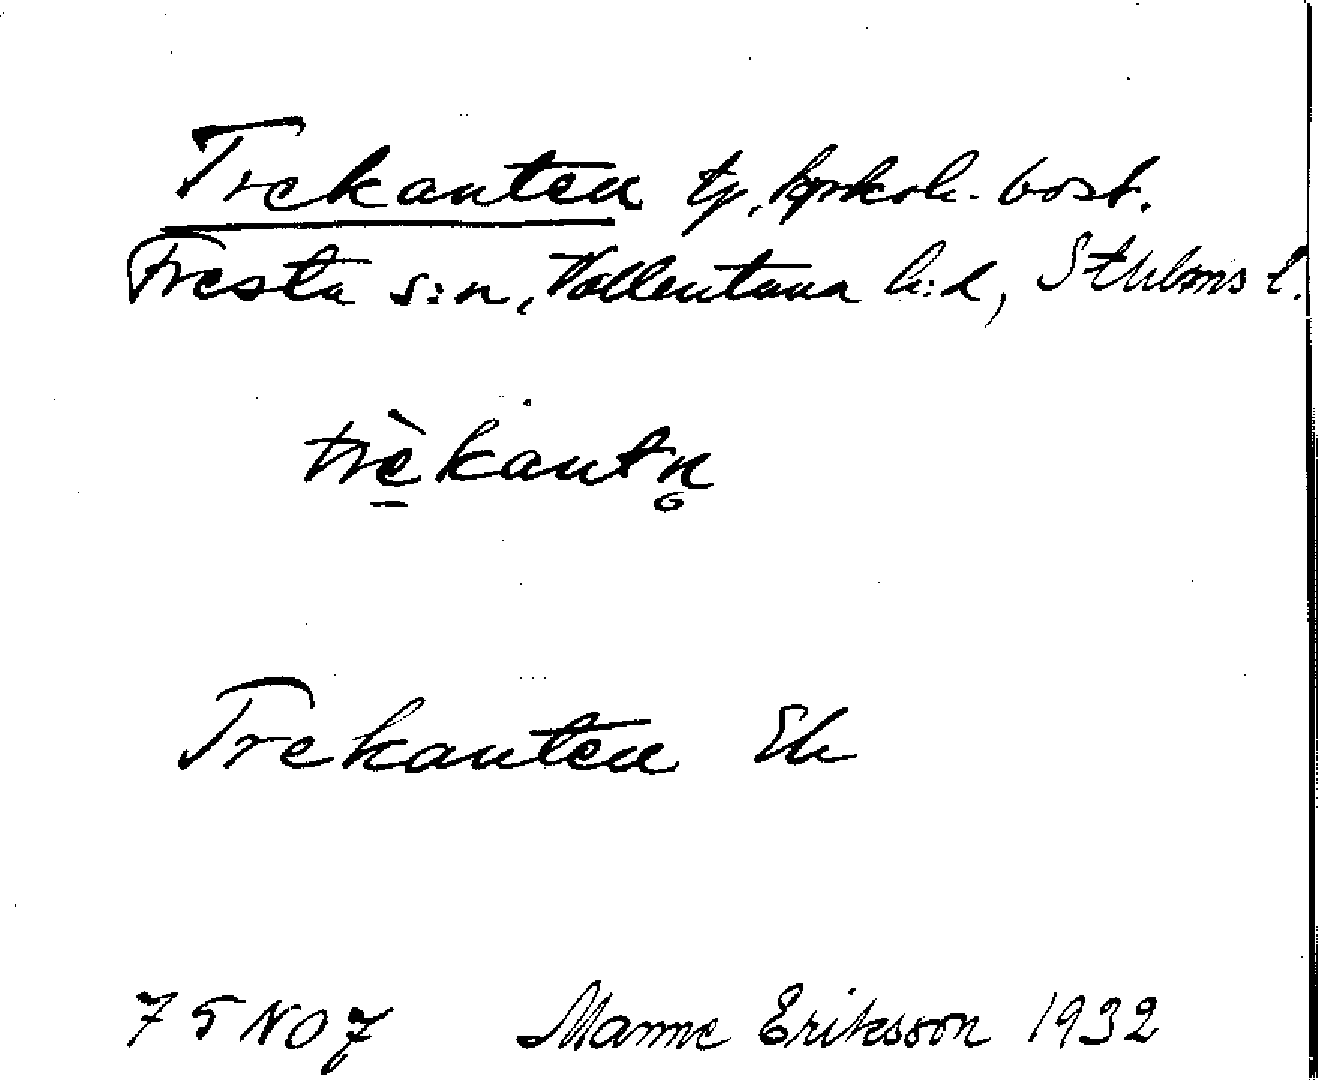 Trekanten tp, kyrkoh. bost.
Fresta s:n, Vallentuna h:d, Sthlms l.
trèkantn̥
Trekanten Ek
75NO7 Manne Eriksson 1932